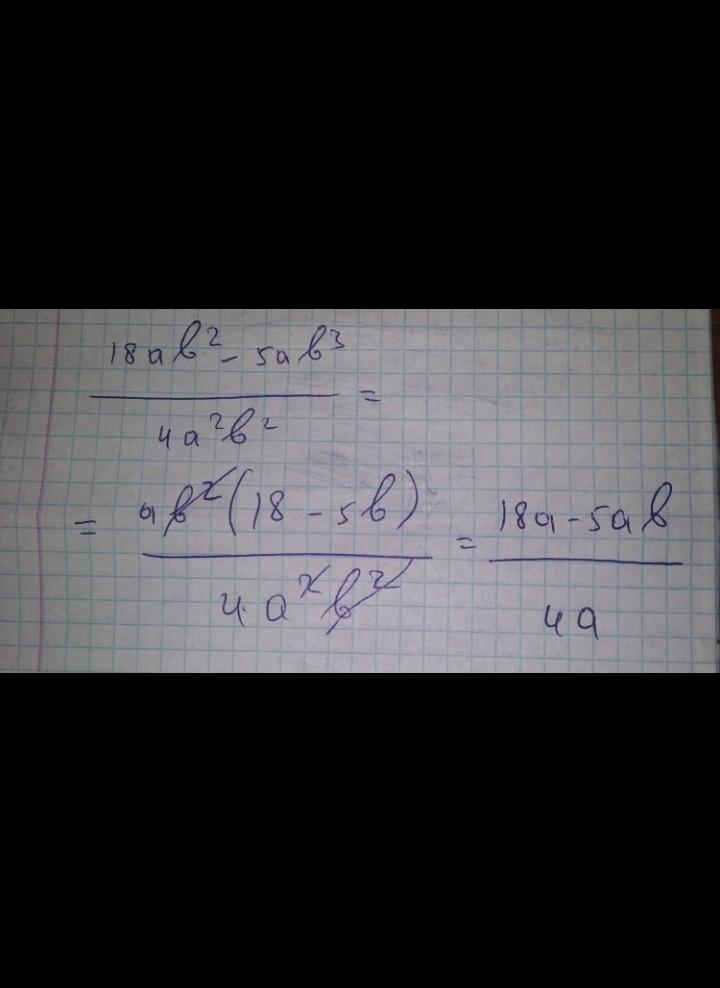 18ab² - 5ab³
4a²b² =
= ab²(18 - 5b)
4a²b² = 18a - 5ab
4a